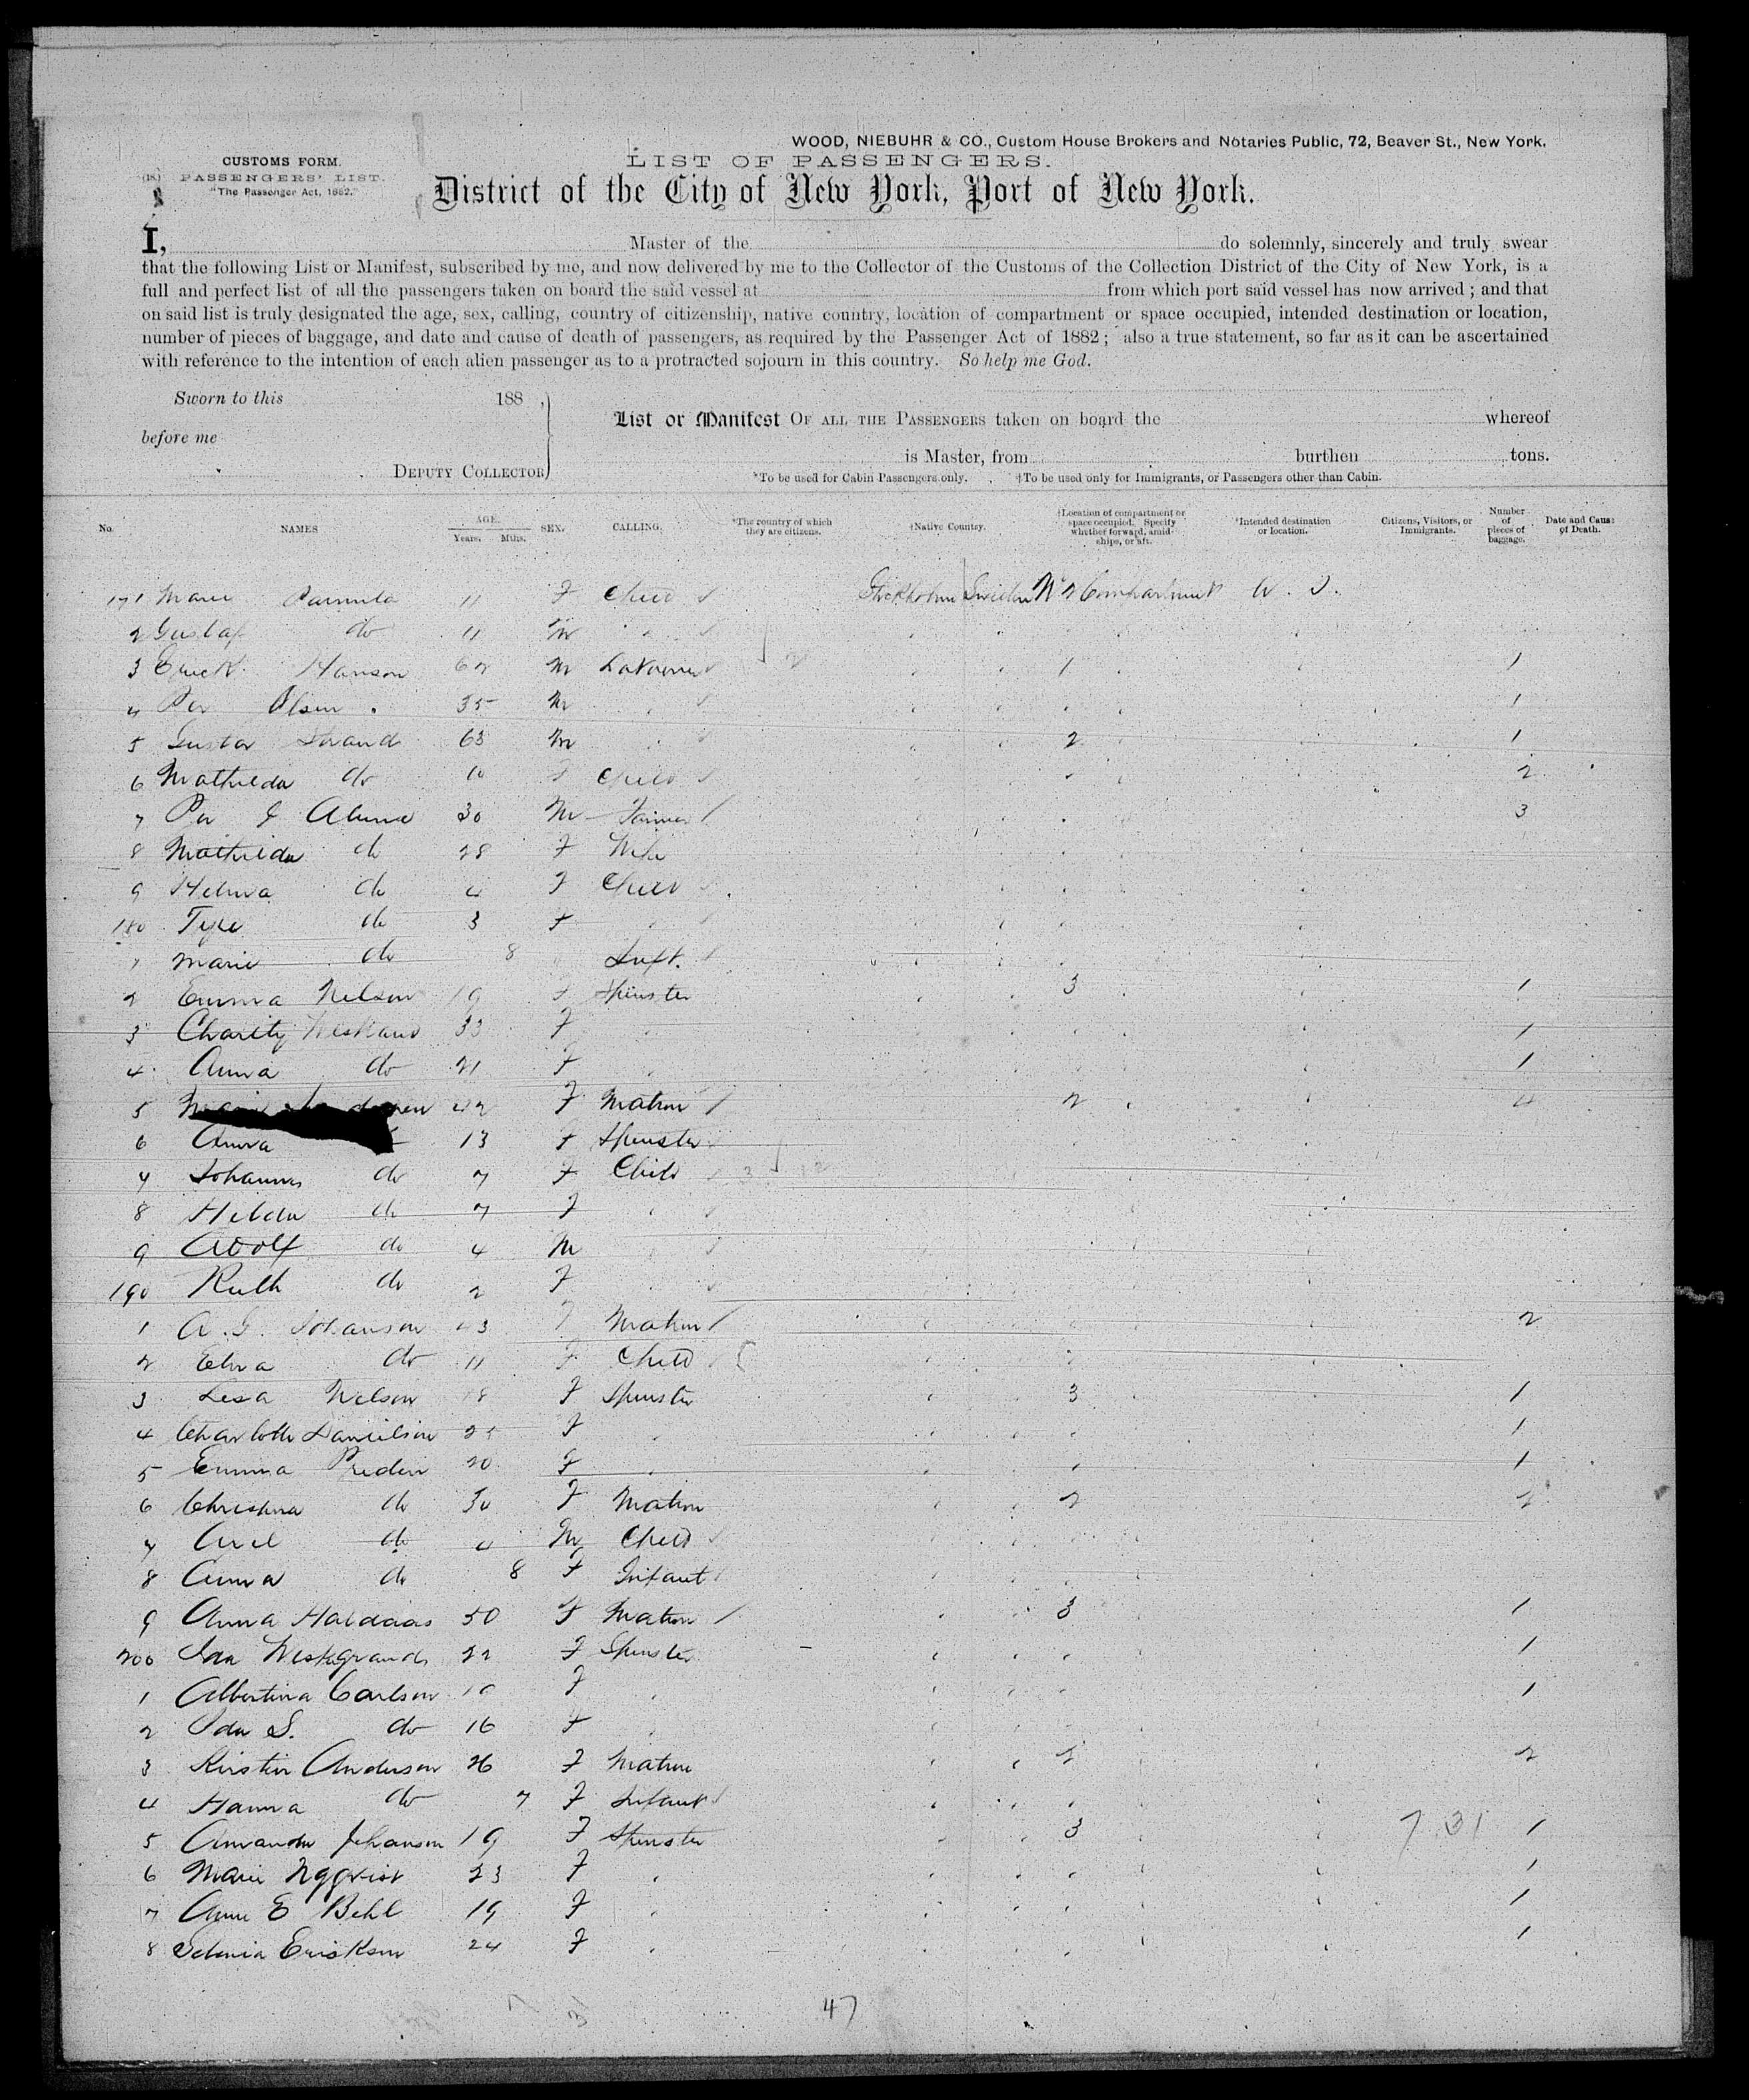 WOOD, NIEBUHR & CO., Custom House Brokers and Notaries Public, 72, Beaver St., New York.
CUSTOMS FORM.
LIST OF PASSENGERS.
(18.) PASSENGERS' LIST.
"The Passenger Act, 1882."
District of the City of New York, Port of New York.
I, Master of the do solemnly, sincerely and truly swear
that the following List or Manifest, subscribed by me, and now delivered by me to the Collector of the Customs of the Collection District of the City of New York, is a
full and perfect list of all the passengers taken on board the said vessel at from which port said vessel has now arrived; and that
on said list is truly designated the age, sex, calling, country of citizenship, native country, location of compartment or space occupied, intended destination or location,
number of pieces of baggage, and date and cause of death of passengers, as required by the Passenger Act of 1882; also a true statement, so far as it can be ascertained
with reference to the intention of each alien passenger as to a protracted sojourn in this country. So help me God.
Sworn to this 188 ,
before me
DEPUTY COLLECTOR
List or Manifest OF ALL THE PASSENGERS taken on board the whereof
is Master, from burthen tons.
*To be used for Cabin Passengers only. †To be used only for Immigrants, or Passengers other than Cabin.
No. NAMES AGE. Years. Mths. SEX. CALLING. *The country of which they are citizens. †Native Country. †Location of compartment or space occupied. Specify whether forward, amidships, or aft. *Intended destination or location. Citizens, Visitors, or Immigrants. Number of pieces of baggage. Date and Cause of Death.
171 Marie 11 F Child Stockholm Sweden No 2 Compartment U. S.
2 Gustaf do 11 M
3 Erick Hanson 62 M Labourer 1 1
4 Per Olsen 35 M 1
5 Gustav Strand 63 M 2 1
6 Mathilda do 10 F Child 2
7 Per J 30 M Farmer 3
8 Mathilda do 28 F Wife
9 do 4 F Child
180 do 3 F
1 Marie do 8 Inft.
2 Emma Nelson 19 F Spinster 3 1
3 Charity 33 F 1
4 Anna do 21 F 1
5 42 F Matron 2 4
6 Anna 13 F Spinster
7 Johanna do 7 F Child
8 Hilda do 7 F
9 Adolf do 4 M
190 Ruth do 2 F
1 A. G. Johanson 43 F Matron 2
2 Elna do 11 F Child
3 Lesa Nelson 18 F Spinster 3 1
4 Charlotte Danielson F 1
5 Emma Preden 20 F 1
6 Christina do 30 F Matron 2 2
7 do M Child
8 Anna do 8 F Infant
9 Anna Haldaas 50 F Matron 3 1
200 Ida Westegrand 22 F Spinster 1
1 Albertina Carlson F 1
2 Ida S. do 16 F
3 Kirstin Anderson 26 F Matron 2 2
4 Hanna do 7 F Infant
5 Amanda Johanson 19 F Spinster 3 7 31 1
6 Marie Nyqvist 23 F 1
7 Anne E Behl 19 F 1
8 Erikson 24 F 1
47